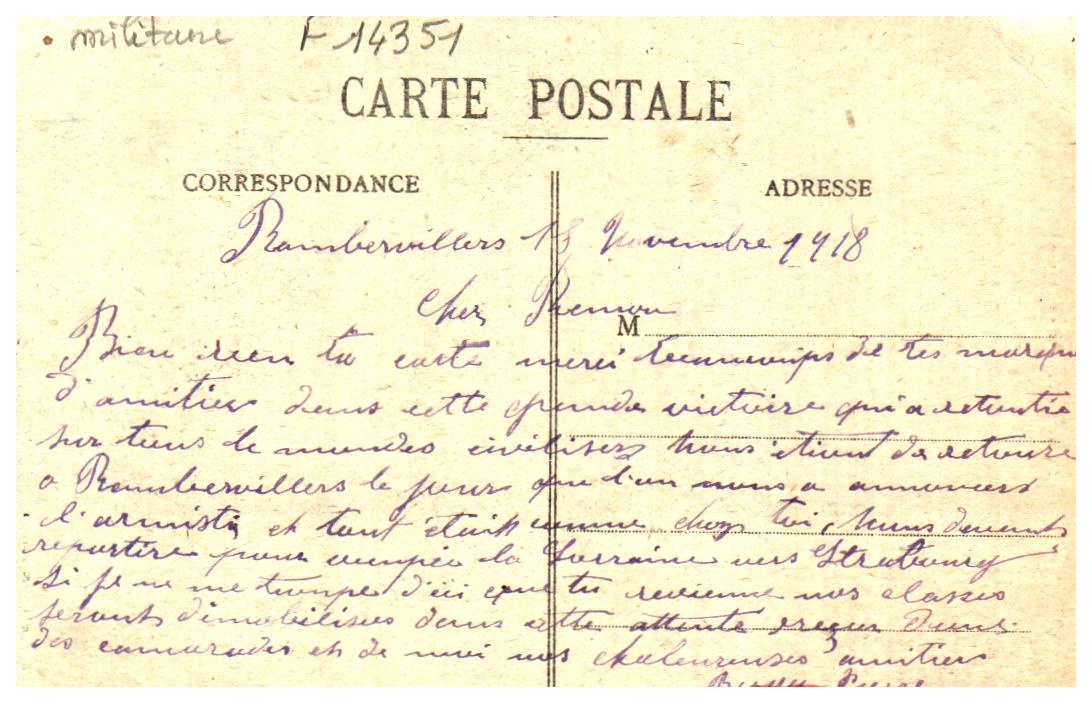 militaire F 14351
CARTE POSTALE
CORRESPONDANCE ADRESSE
Rambervillers 13 Novembre 1918
Cher
M
Bien recu ta carte merci beaucoups de tes marque
d'amitier dans cette grande victoire qui a retentie
sur tous le mondes civilisers nous étiont de retoure
a Rambervillers le jours que l'on nous a annoncers
l'armisti et tout était comme chez toi, nous devonts
repartire pour occupée la Lorraine vers Strabourg
si je ne me trompe d'ici que tu revienne nos classes
seronts démobilisées dans cette attente reçois d'une
des camarades et de moi nos chaleureuses amitiers